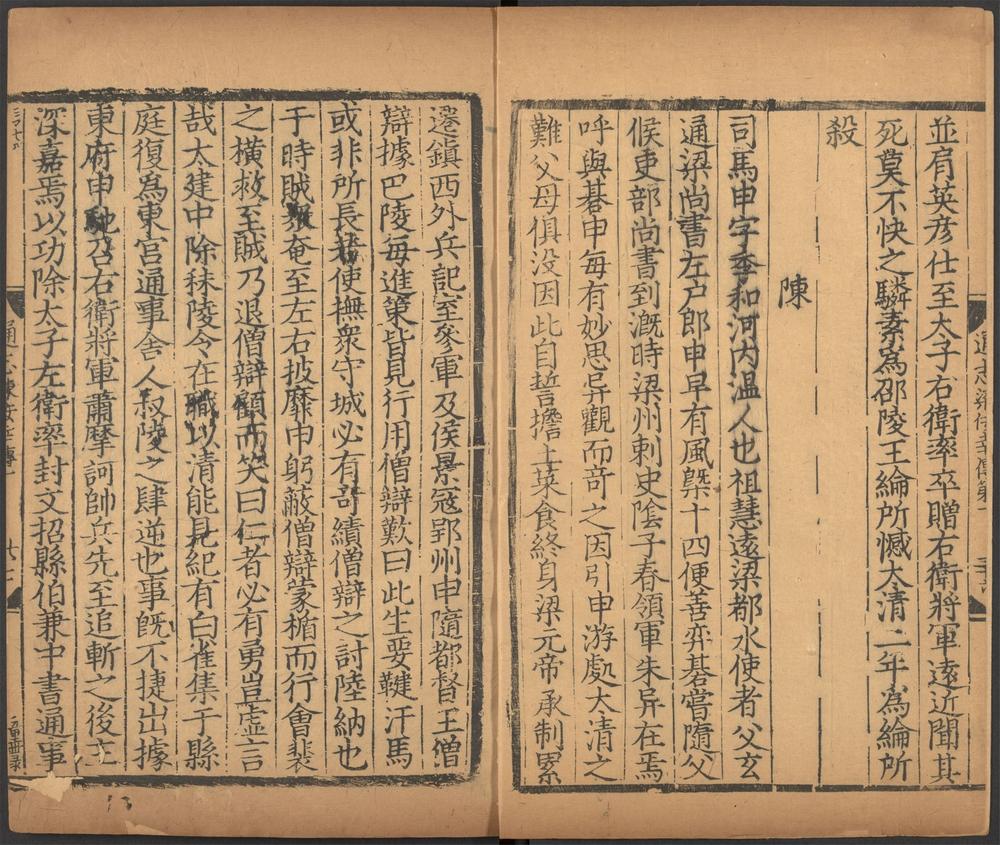 並肩英彦仕至太子右衛率卒贈右衛將軍遠近聞其
死莫不快之驎素爲邵陵王綸所憾太清二年爲綸所
殺
陳
司馬申字季和河内温人也祖慧遠梁都水使者父玄
通梁尚書左户郎申早有風槩十四便善弈碁嘗隨父
候吏部尚書到溉時梁州刺史陰子春領軍朱异在焉
呼與碁申每有妙思异觀而奇之因引申游處太清之
難父母俱没因此自誓擔土菜食終身梁元帝承制累
遷鎮西外兵記至參軍及侯景寇郢州申隨都督王僧
辯據巴陵每進策皆見行用僧辯歎曰此生要鞬汗馬
或非所長若使撫衆守城必有奇績僧辯之討陸納也
于時賊衆奄至左右披靡申躬蔽僧辯蒙楯而行會裴
之横救至賊乃退僧辯顧而笑曰仁者必有勇豈虚言
哉太建中除秣陵令在職以清能見紀有白雀集于縣
庭復爲東宫通事舍人叔陵之肆逆也事旣不捷出據
東府申馳召右衛將軍蕭摩訶帥兵先至追斬之後主
深嘉焉以功除太子左衛率封文招縣伯兼中書通事